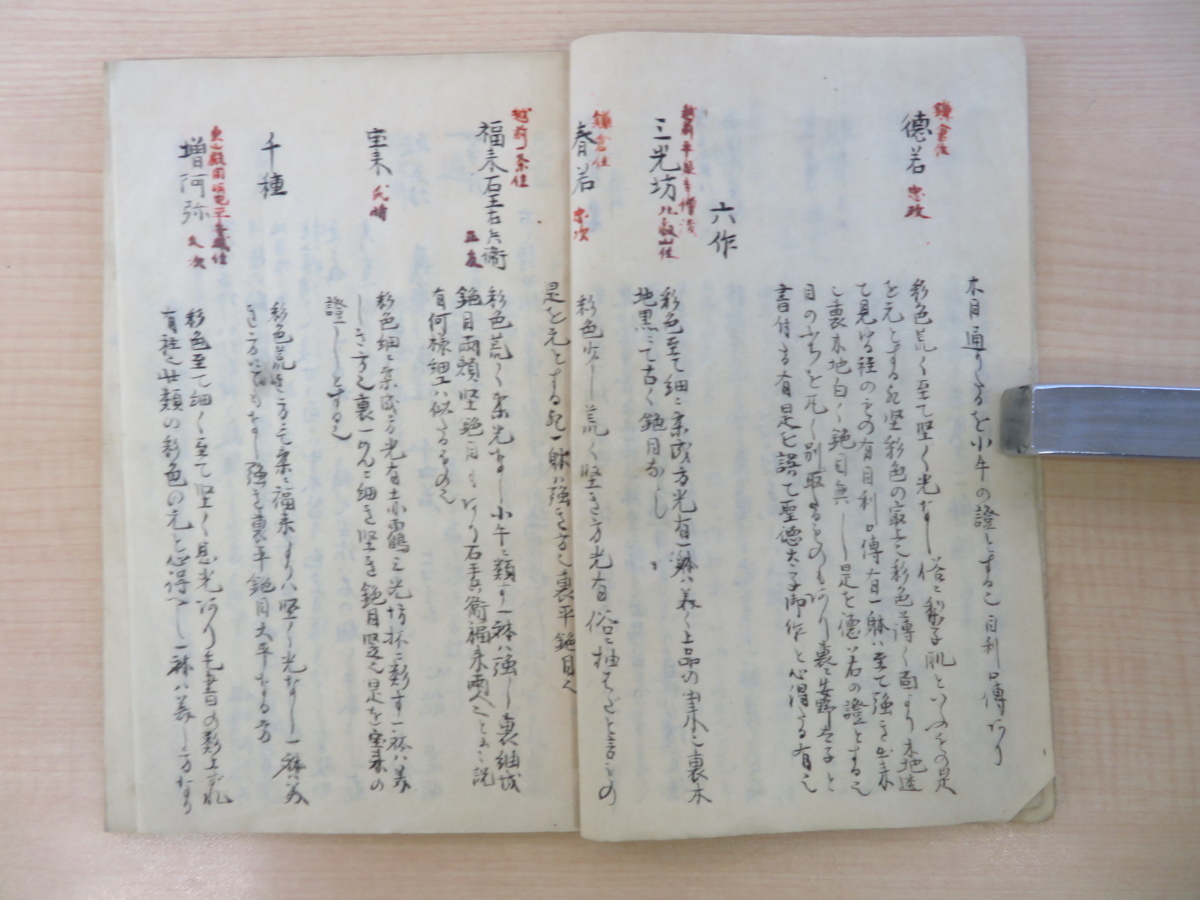 木目通りたるを小牛の證とする也目利口傳あり
鎌倉住
徳若 忠政
彩色荒く至て堅く光なし俗に梨子肌といふもの是
を元とする也堅彩色の家にて彩色薄く面より木地透
て見ゆる程のもの有目利口傳有一躰は至て強き出来
也裏木地白く鉋目無し是を徳若の證とする也
目のふちを丸く別取たるものもあり裏に
書付ケ有是を誤て聖徳太子御作と心得たる有之
六作
越前平泉寺僧後
比叡山住
三光坊
彩色至て細に柔成方光有一躰は美く上品の出来也裏木
地黒にて古く鉋目なし
鎌倉住
春若 忠次
彩色少し荒く堅き方光有俗に柚はだと言もの
是を元とする也一躰は強き方也裏平鉋目也
越前一条住
福来石王右兵衛 正友
彩色荒く柔光なし小牛に類す一躰は強し裏細成
鉋目両顔堅鉋目もあり石王兵衛福来両人とも云説
有何様細工は似たるもの也
宝来 氏時
彩色細に柔成方光有赤鶴三光坊抔に類す一躰は美
しき方也裏一めんに細き堅き鉋目竪也是を宝来の
證しとする也
千種
彩色荒き方にて柔に福来よりは堅く光なし一躰は美
き方にてもなし強き裏平鉋目大平なる方
東山殿同朋電平京城住
増阿弥 久次
彩色至て細く至て堅く息光あり毛書の類上でれ
有社也此類の彩色の元と心得べし一躰は美し方なり